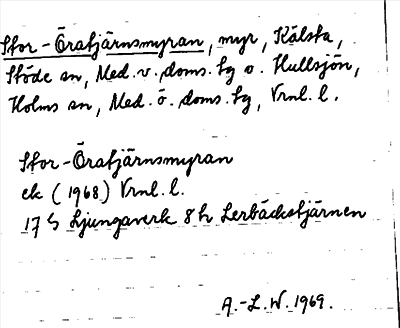 Stor-Öratjärnsmyran, myr, Kälsta,
Stöde sn, Med. v. doms. tg o. Hullsjön,
Holms sn, Med. ö. doms. tg, Vrnl. l.
Stor-Öratjärnsmyran
ek (1968) Vrnl. l.
17 G Ljungaverk 8 h Lerbäckstjärnen
A.-L. W. 1969.